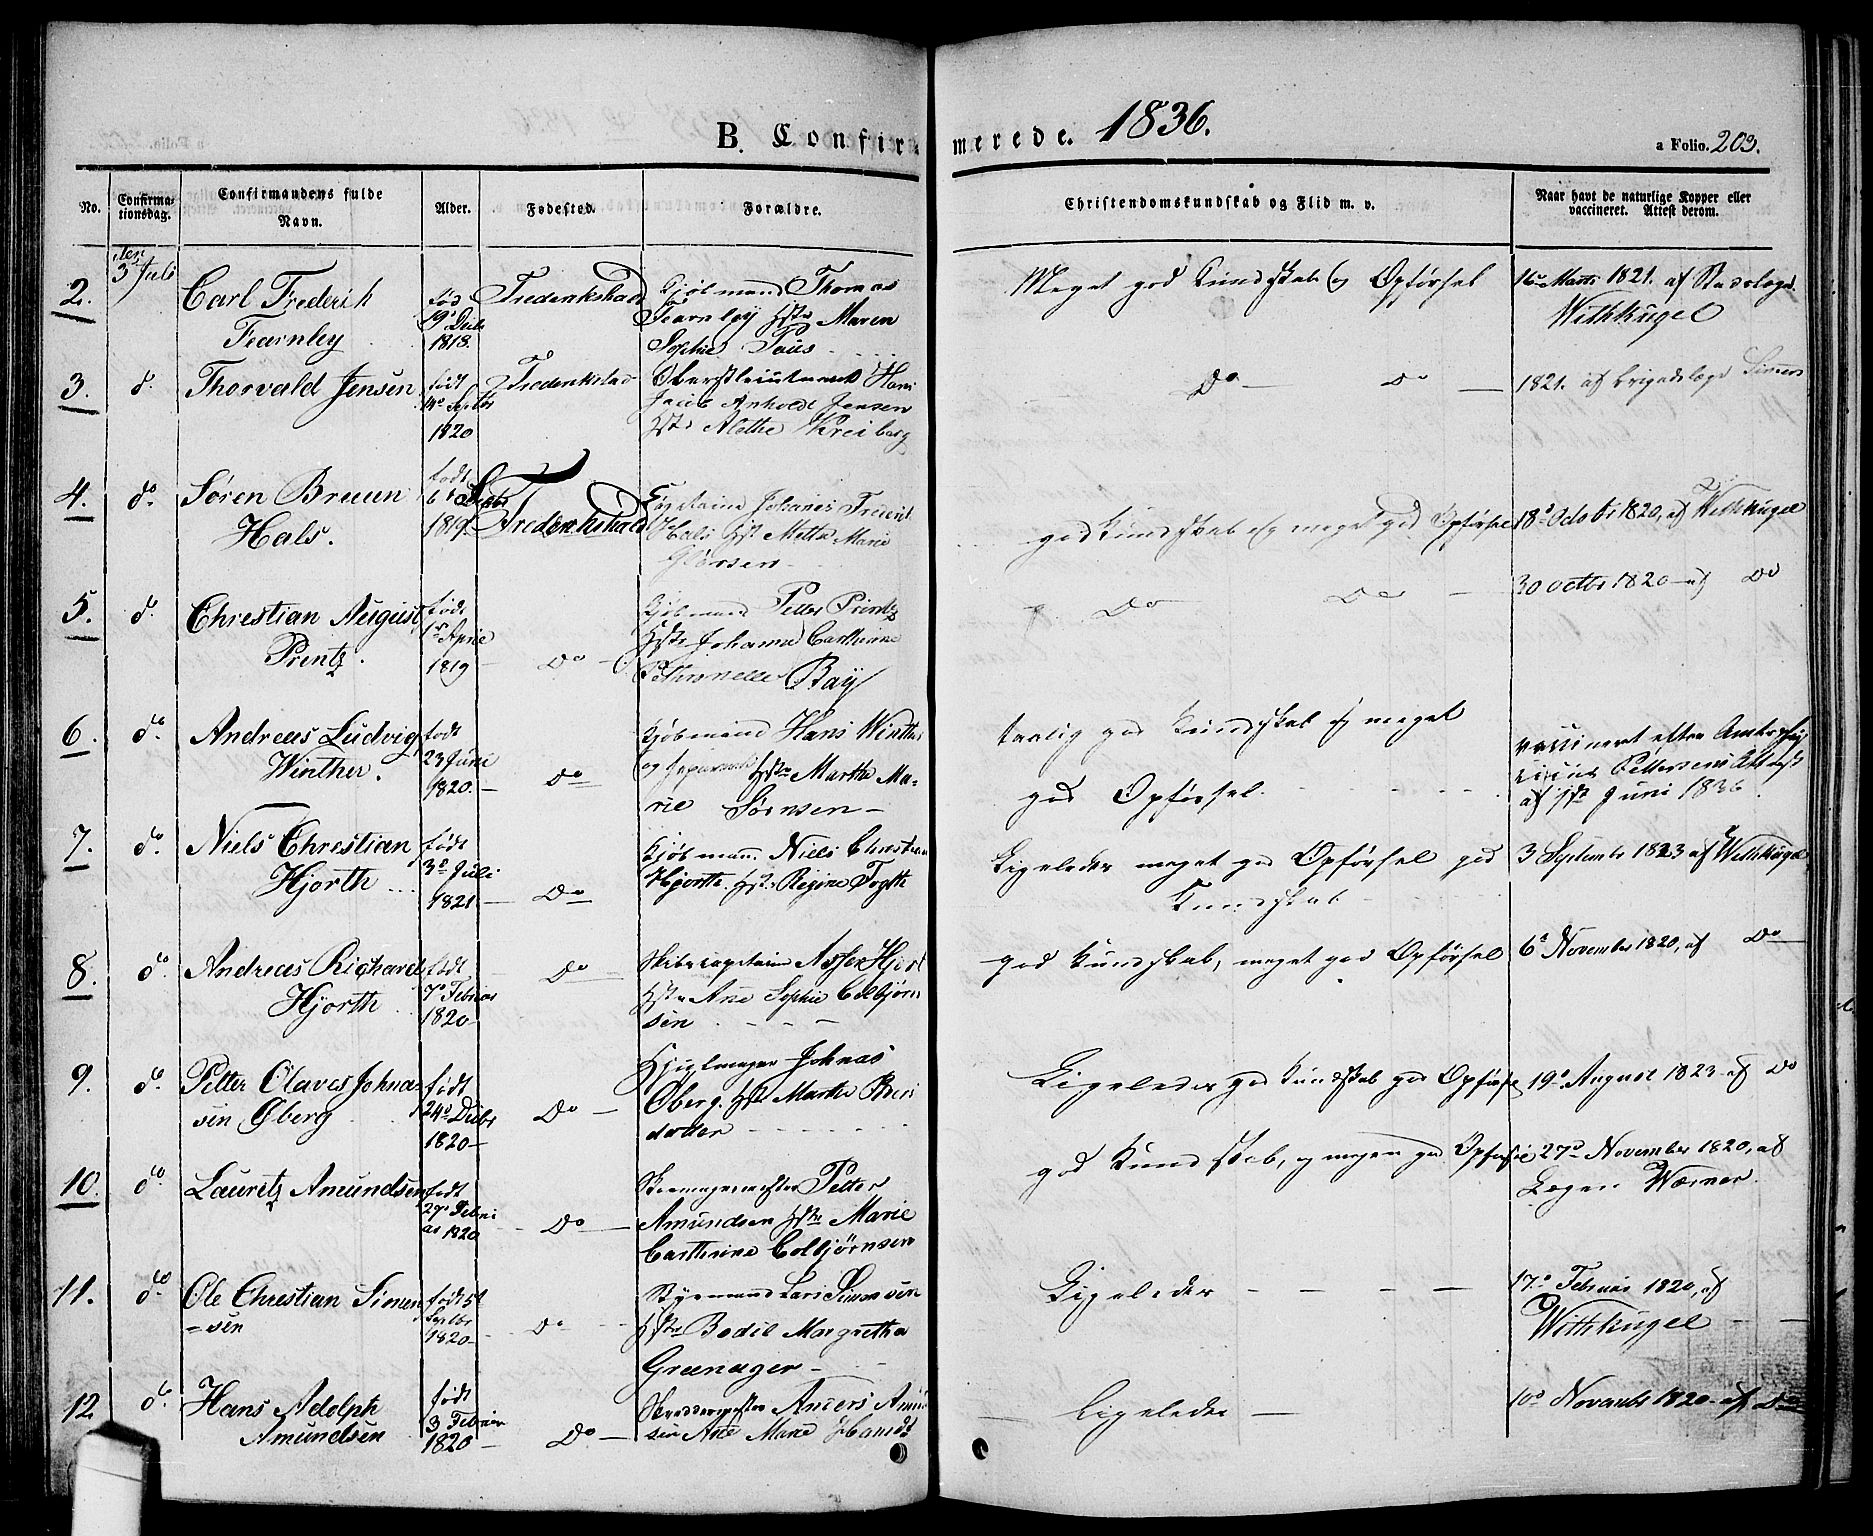 B. Confirmerede. 1836.
a Folio. 203.
No.
Confirmationsdag.
Confirmandens fulde Navn.
Alder.
Fødested.
Forældre.
Christendomskundskab og Flid m. v.
Naar havt de naturlige Kopper eller vaccineret. Attest derom.
2. den 3 Juli Carl Frederik
Fearnley
fød 19d Decbr 1818.
Frederikshald
Kjøbmand Thomas
Fearnley Hstr Maren
Sophie Paus
Meget god Kundskab og Opførsel
16de Marts 1821. af Stadslæge
Wethkugel
3. do. Thorvald Jensen
født Septbr 1820
Frederikstad
Oberstleutnant Hans
Jacob Anholdt Jensen
Hstr Alethe Kreiberg
Do — Do —
1821. af Brigadelæge
4. do. Søren Bruun
Hals.
født 6te 1819
Frederikshald
Johanes Frederik
Hals Hst Mette Marie
god Kundskab og meget god Opførsel
18de Octobr 1820, af Wethkugel
5. do. Christian August
Prentz.
født 1ste April 1819
Do
Kjøbmand Petter Printz
Hstr Johanne Cartharine
Pethronelle Bay
Do — Do —
30 octbr 1820 af Do
6. do. Andreas Ludvig
Winther.
født 23 Juni 1820.
Do
Kjøbmand Hans Winther
og Hstr Marthe Ma-
rie Sørnsen
taalig god Kundskab og meget
god Opførsel.
vaccineret efter
Pettersens Attest
af 1ste Juni 1836
7. do. Niels Christian
Hjorth
født 3d Juli 1821
Do
Kjøbmann Niels Christian
Hjorth. Hstr Regine Fogth
Ligeledes meget god Opførsel god
Kundskab
3 Septembr 1823 af Wethkugel
8. do. Andreas Righard
Hjorth
født 7d Februar 1820
Do
Skibscapitain Hjort
Hstr Ane Sophie Colbjørn
sen
god Kundskab, meget god Opførsel
6d November 1820, af Do
9. do. Petter Olaves Johna
sen Øberg
født 24d Decbr 1820
Do
Hjulmager Johnas
Øberg. Hstr Marthe
datter
Ligeledes god Kundskab god Opførsel
19d August 1823 af Do
10. do. Lauritz Amundsen
født 27d Februar 1820
Do
Skomagermester Petter
Amundsen Hstr Marie
Cartherine Colbjørnsen
god Kundskab, og megen god Opførsel
27d November 1820, af
Lægen Wærner.
11. do. Ole Christian Simen
=sen
født 5t Septbr 1820
Do
Styrmand Lars Simensen
Hstr Bodil Margretha
Greenager
Ligeledes
17d Februar 1820, af
Wethkugel
12. do. Hans Adolph
Amundsen
født 3 Februar 1820
Do
Skreddermester Anders Amund
sen Ane Marie
Ligeledes
10d Novembr 1820 af Do